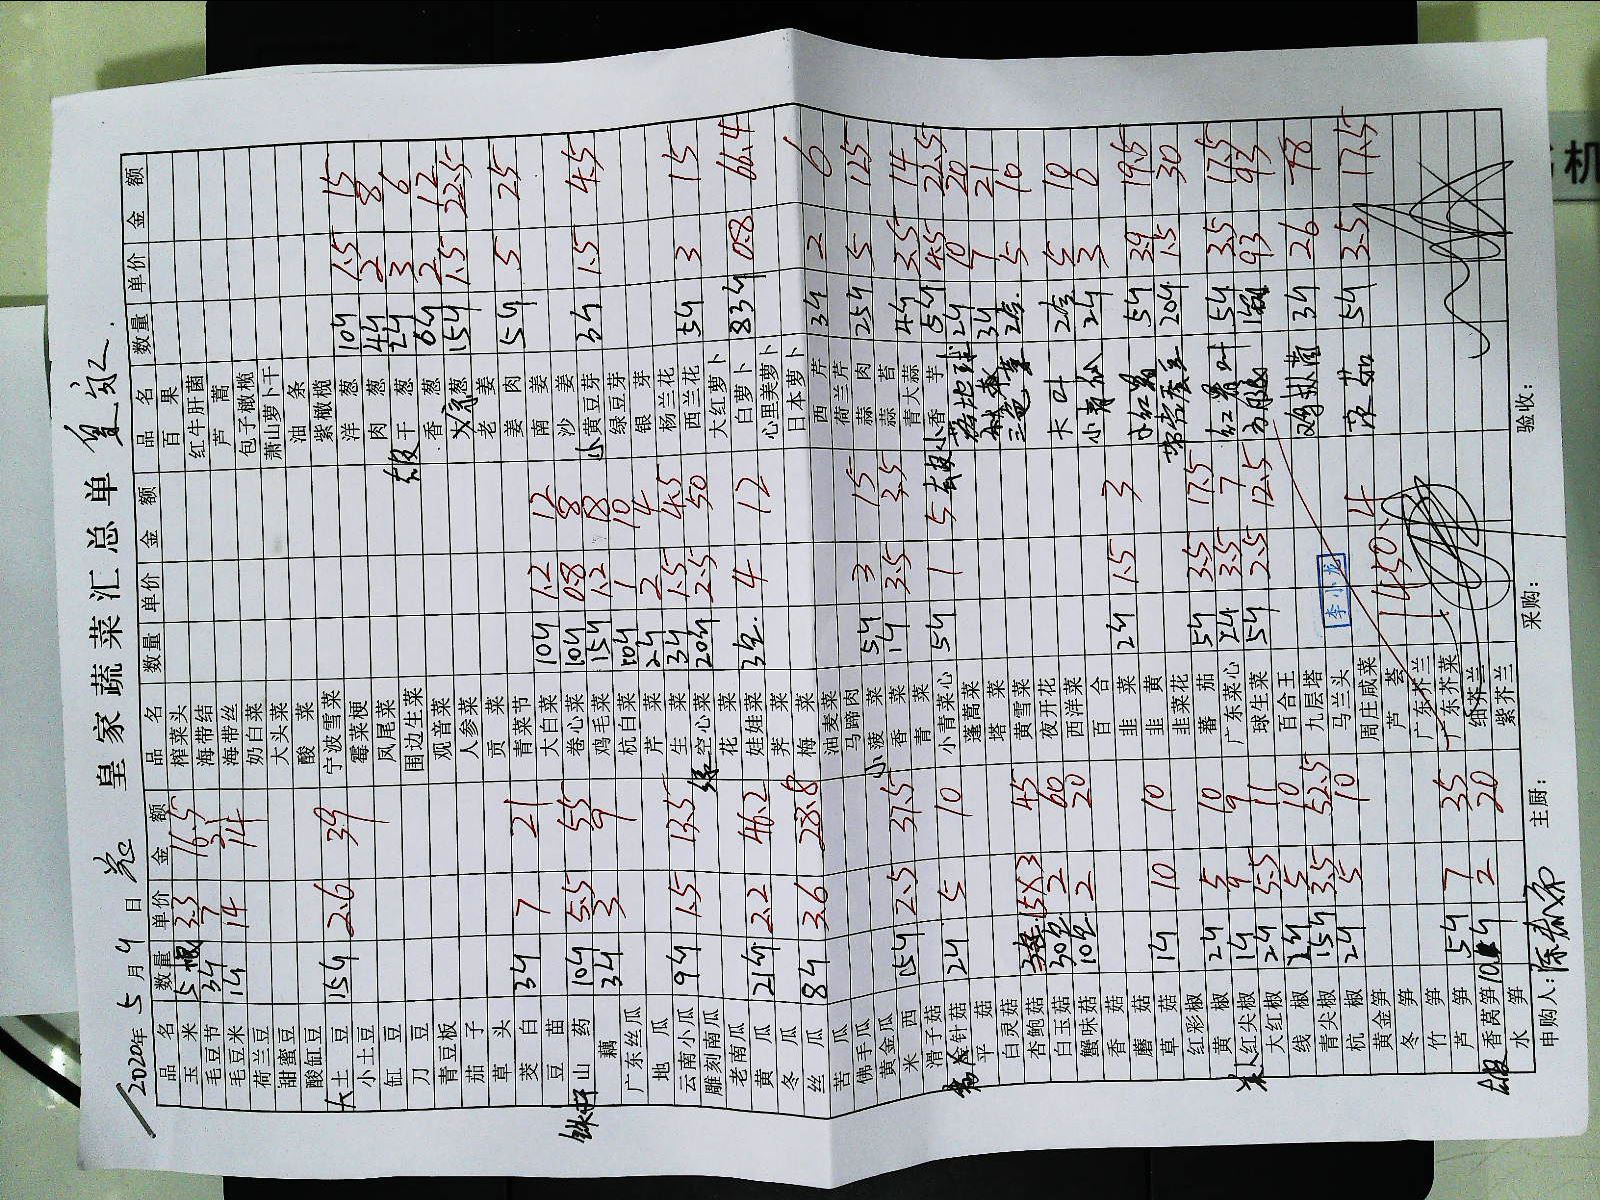 皇家蔬菜汇总单
2020年5月4日
品名 数量 单价 金额
玉米 5 3.3 16.5
毛豆节 3斤 7 21
毛豆米 1斤 14 14
荷兰豆
甜蜜豆
酸豇豆
大土豆 15斤 2.6 39
小土豆
豇豆
刀豆
青豆板
茄子
草头
茭白 3斤 7 21
豆苗
铁棍山药 10斤 5.5 55
藕 3斤 3 9
广东丝瓜
地瓜
云南小瓜 9斤 1.5 13.5
雕刻南瓜
老南瓜
黄瓜 21斤 2.2 46.2
冬瓜
丝瓜 8斤 3.6 28.8
苦瓜
佛手瓜
黄金瓜
米西 15斤 2.5 37.5
滑子菇
金针菇 2斤 5 10
平菇
白灵菇
杏鲍菇 3包 15×3 45
白玉菇 30包 2 60
蟹味菇 10包 2 20
香菇
蘑菇
草菇 1斤 10 10
红彩椒
黄椒 2斤 5 10
红尖椒 1斤 9 9
大红椒 2斤 5.5 11
线椒 2斤 5 10
青尖椒 15斤 3.5 52.5
杭椒 2斤 5 10
黄金笋
冬笋
竹笋
芦笋 5斤 7 35
香莴笋 10斤 2 20
水笋
品名 数量 单价 金额
榨菜头
海带结
海带丝
奶白菜
大头菜
酸菜
宁波雪菜
霉菜梗
凤尾菜
围边生菜
观音菜
人参菜
贡菜
青菜节
大白菜 10斤 1.2 12
卷心菜 10斤 0.8 8
鸡毛菜 15斤 1.2 18
杭白菜 10斤 1 10
芹菜 2斤 2 4
生菜 3斤 1.5 4.5
绿空心菜 20斤 2.5 50
花菜
娃娃菜 3包 4 12
荠菜
梅菜
油麦菜
马蹄肉
小菠菜 5斤 3 15
香菜 1斤 3.5 3.5
青菜
小青菜心 5斤 1 5
蓬蒿菜
塔菜
黄雪菜
夜开花
西洋菜
百合
韭菜 2斤 1.5 3
韭黄
韭菜花
蕃茄 5斤 3.5 17.5
广东菜心 2斤 3.5 7
球生菜 5斤 2.5 12.5
百合王
九层塔
马兰头
周庄咸菜
芦荟
广东芥兰
广东芥菜
细芥兰
紫芥兰
李小龙
1450.4
品名 数量 单价 金额
百果
红牛肝菌
芦蒿
包子橄榄
萧山萝卜干
油条
紫橄榄
洋葱 10斤 1.5 15
肉葱 4斤 2 8
干葱 2斤 3 6
香葱 6斤 2 12
大葱 15斤 1.5 22.5
老姜
姜肉 5斤 5 25
南姜
沙姜
小黄豆芽 3斤 1.5 4.5
绿豆芽
银芽
杨兰花
西兰花 5斤 3 15
大红萝卜
白萝卜 83斤 0.8 66.4
心里美萝卜
日本萝卜
西芹 3斤 2 6
荷兰芹
蒜肉 25斤 5 125
蒜苔
青大蒜 4斤 3.5 14
小香芋 5斤 4.5 22.5
2斤 10 20
3斤 7 21
2合 5 10
2合 5 10
小青 2斤 3 6
小红薯 5斤 3.9 19.5
20斤 1.5 30
红薯叶 5斤 3.5 17.5
93 93
鸡枞菌 3斤 26 78
茨菇 5斤 3.5 17.5
申购人:
主厨:
采购:
验收:
机